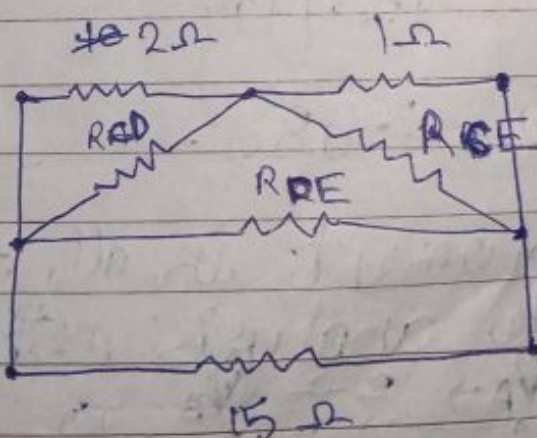 2Ω 1Ω
RCD RCE
RDE
15 Ω